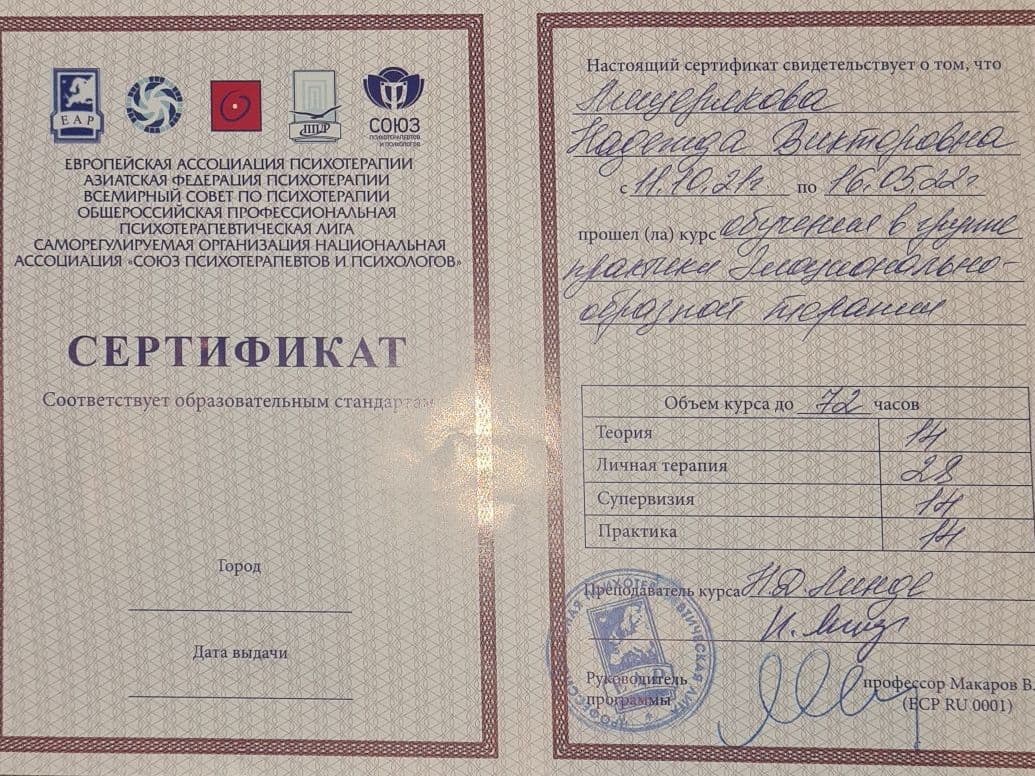 ЕАР
ППЛ
СОЮЗ
ПСИХОТЕРАПЕВТОВ
И ПСИХОЛОГОВ
ЕВРОПЕЙСКАЯ АССОЦИАЦИЯ ПСИХОТЕРАПИИ
АЗИАТСКАЯ ФЕДЕРАЦИЯ ПСИХОТЕРАПИИ
ВСЕМИРНЫЙ СОВЕТ ПО ПСИХОТЕРАПИИ
ОБЩЕРОССИЙСКАЯ ПРОФЕССИОНАЛЬНАЯ
ПСИХОТЕРАПЕВТИЧЕСКАЯ ЛИГА
САМОРЕГУЛИРУЕМАЯ ОРГАНИЗАЦИЯ НАЦИОНАЛЬНАЯ
АССОЦИАЦИЯ «СОЮЗ ПСИХОТЕРАПЕВТОВ И ПСИХОЛОГОВ»
СЕРТИФИКАТ
Соответствует образовательным стандартам
Город
Дата выдачи
Настоящий сертификат свидетельствует о том, что
Надежда Викторовна
с 11.10.21г. по 16.05.22г.
прошел (ла) курс обучения в группе
практики Эмоционально-
образной терапии
Объем курса до 72 часов
Теория 14
Личная терапия 28
Супервизия 14
Практика 14
Преподаватель курса Н.Д. Линде
Руководитель
программы
профессор Макаров В.
(ECP RU 0001)